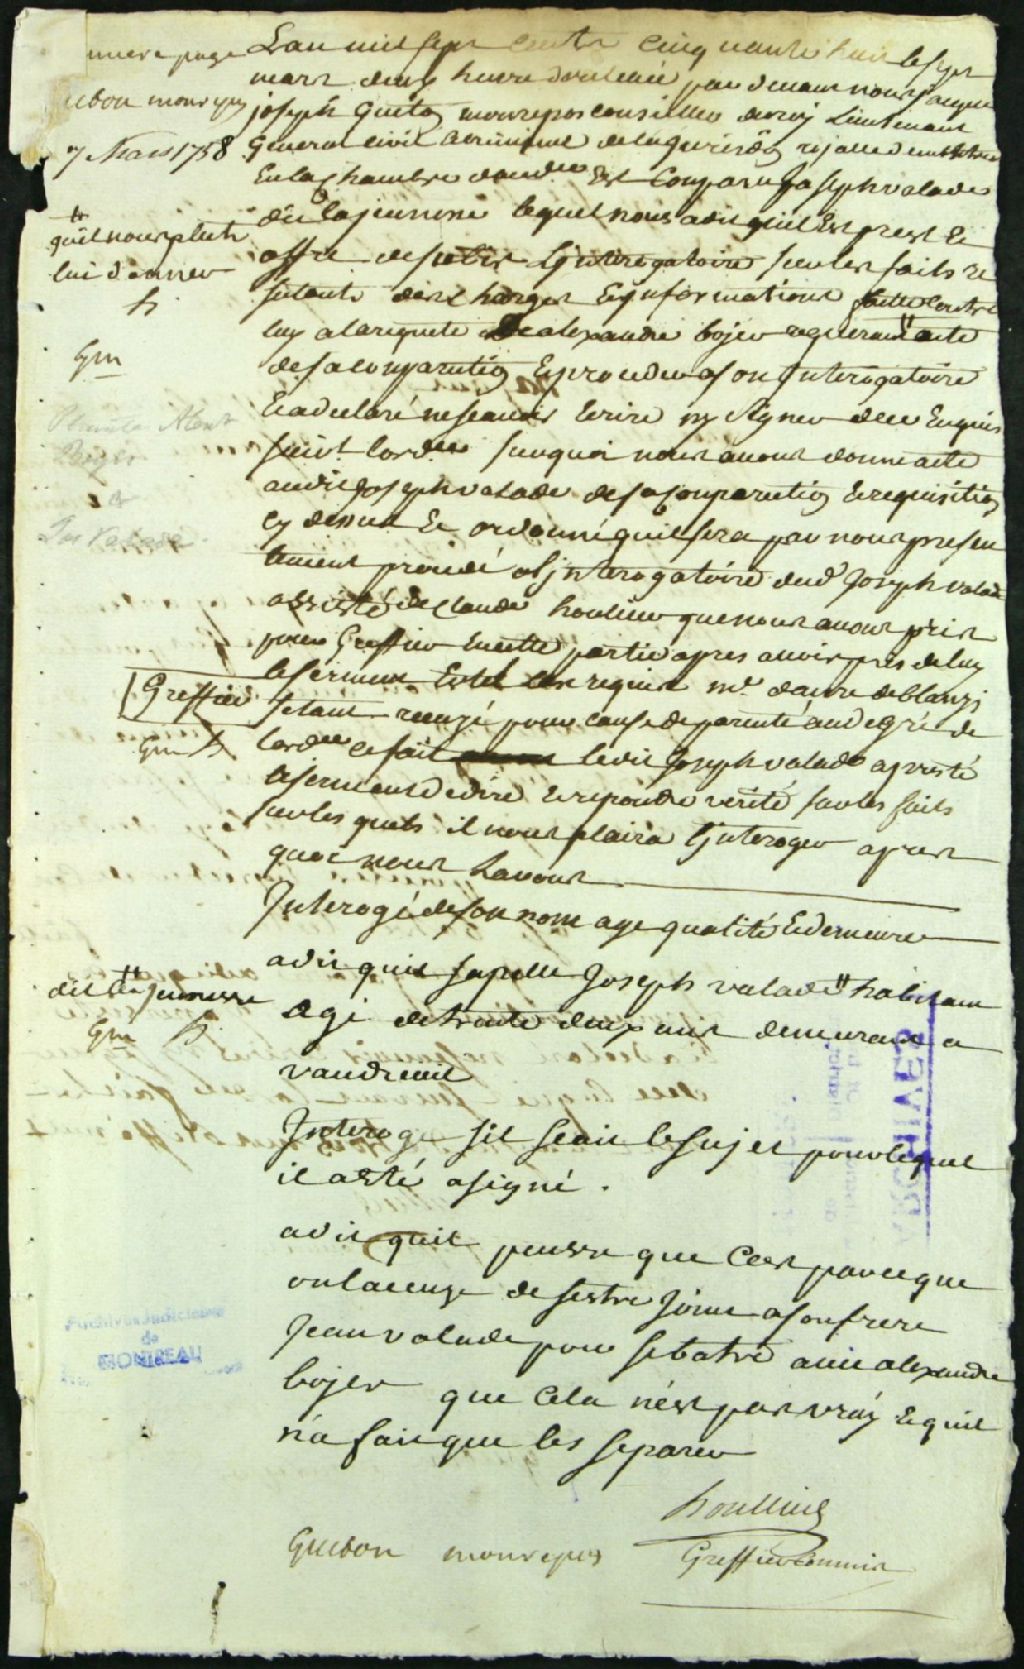 miere page
Guiton monrepos
7 Mars 1758
L'an mil sept cents cinquante huit le sept
mars deux heure de relevée par devant nous jacque
joseph Guiton monrepos conseiller du roy Lieutenant
General civil & criminel de la jurisdõn rojalle de montreal
En la chambre
Est Comparu Joseph valade
dit la jeunesse lequel nous a dit quil Est prest Et
offre de subir L'jnterogatoire sur les faits re
sultants des charges & jnformations faittes contre
luy a la requete de alexandre bojer requerant # acte
de sa comparution & proceder a son jnterogatoire
Et a declaré ne scavoir Ecrire ny signer de ce Enquis
suivt lordce surquoi nous avons donné acte
audit Joseph valade de sa comparution & requisition
cy dessus Et ordonné quil sera par nous presen
tement procedé a l'jnterogatoire dud. Joseph valade
assisté de Claude houlier que nous avons pris
pour Greffier en cette partie apres avoir pris de luy
le serment Est me danre deblanzj
setant recuzé pour cause de parenté au degré de
lordce ce fait ledit Joseph valade a presté
le serment de dire & repondre verité sur les faits
sur les quels il nous plaira l'jnteroger apres
quoi nous Lavons
Interogé de son nom age qualité & demeure
a dit quil sapelle Joseph valade # habitant
agé de trente deux ans demeurant a
vaudreuil
Interogé sil scait le sujet pour lequel
il a esté asigné .
a dit quil pensse que Cest parceque
on lacuze de sestre joint a son frere
Jean valade pour se batre avec alexandre
bojer que Cela nest pas vraÿ & quil
n'a fait que les separer
# quil nous plut
lui donner
h
Gm
Plainte Alext
Boyer
Jos Valade.
Greffier
Gm h
# dit la jeunesse
Gm h
houllier
Guiton monrepos
Greffier commis
ARCHIVES
Archives Judiciaires
de
MONTREAL